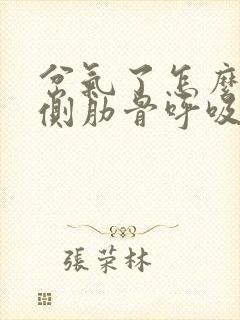 岔氣了怎麼
側肋骨呼吸
張荣林